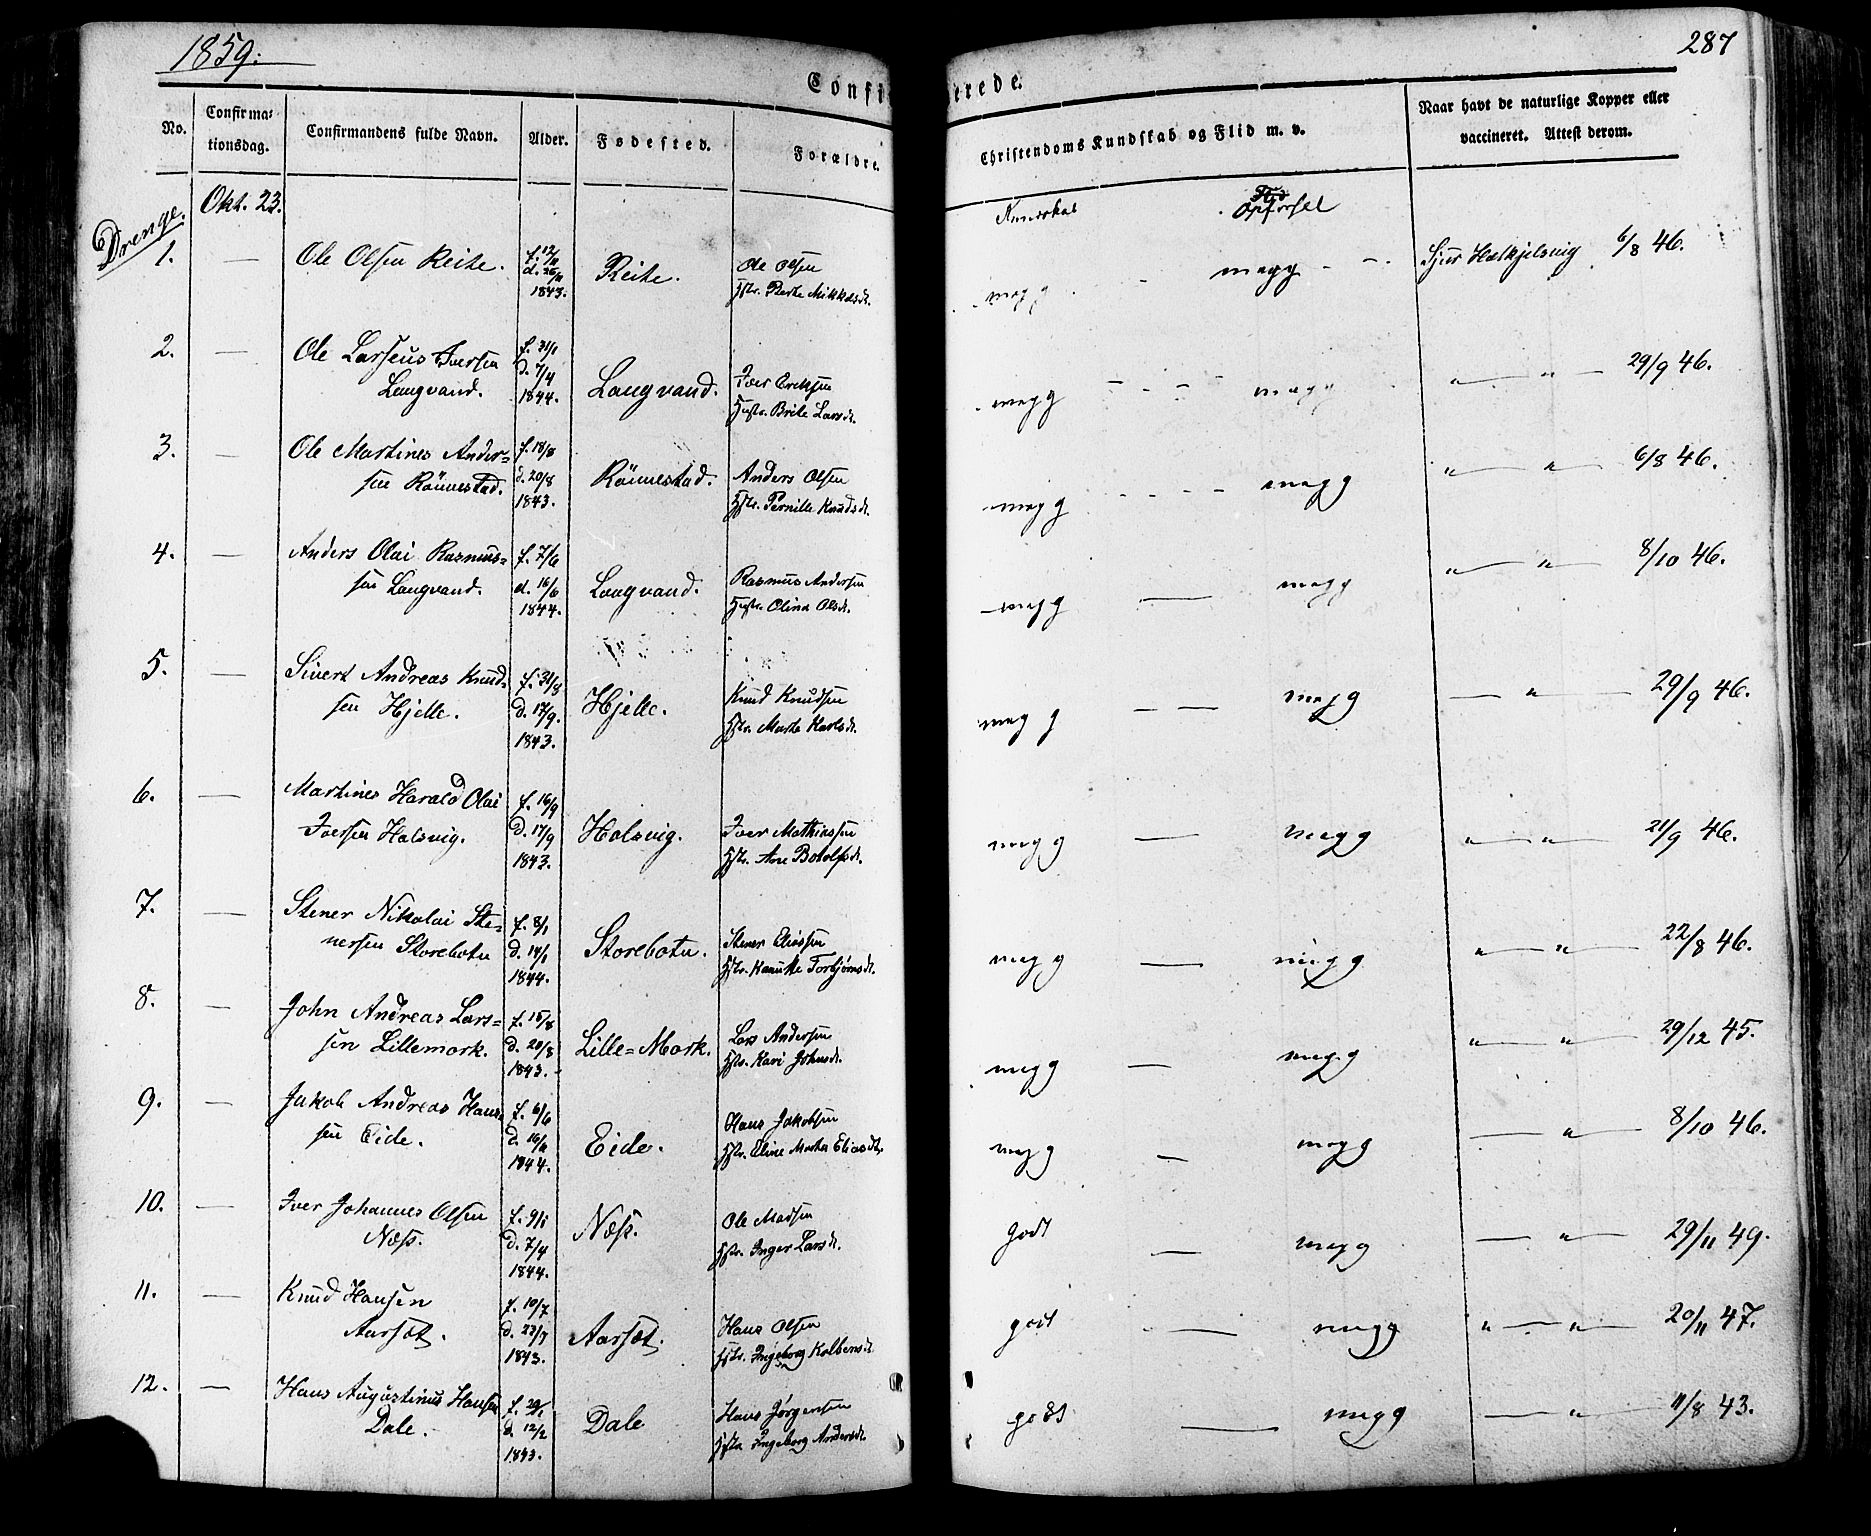 1859.
287
Confi
erede.
No.
Confirma-
tionsdag.
Confirmandens fulde Navn.
Alder.
Fødested.
Forældre.
Christendoms Kundskab og Flid m. v.
Naar havt de naturlige Kopper eller
vaccineret. Attest derom.
Drenge.
Okt. 23.
Kundskab
Opførsel
1. — Ole Olsen Reite.
f. 12/11
d. 26/11
1843.
Reite.
Ole Olsen
Hstr. Berte Mikkelsdt.
meg g - megg - -
Sjur Helkjelsvig 6/8 46.
2. — Ole Larseus Iversen
Langvand.
f. 31/1
d. 7/4
1844.
Langvand.
Iver Eriksen
Hustr. Brite Larsdt.
megg - - - - megg
" — " — 29/9 46.
3. — Ole Martines Ander=
sen Rönnestad.
f. 18/8
d. 20/8
1843.
Rönnestad.
Anders Olsen
Hstr. Pernille Knudsdt.
meg g - - - - meg g
" — " — 6/8 46.
4. — Anders Olai Rasmus=
sen Langvand.
f. 7/6
d. 16/6
1844.
Langvand.
Rasmus Andersen
Hustr. Olina Olsdt.
megg — megg
" — " — 8/10 46.
5. — Sivert Andreas Knud-
sen Hjelle.
f. 31/8
d. 17/9.
1843.
Hjelle.
Knud Knudsen
Hstr. Marte Karlsdt.
meg g — — meg g
— " — 29/9 46.
6. — Martines Harald Olai
Iversen Halsvig.
f. 16/9
d. 17/9
1843.
Halsvig.
Iver Mathiassen
Hstr. Ane Botolfsdt.
meg g — meg g
" — " — 21/9 46.
7. — Stener Nikolai Ste-
nersen Storebotn
f. 8/1
d. 14/1
1844.
Storebotn.
Stener Eliassen
Hstr. Kanutte Torbjørnsdt.
meg g — meg g
" — " — 22/8 46.
8. — John Andreas Lars=
sen Lillemork.
f. 15/8
d. 20/8
1843.
Lille=Mork.
Lars Andersen
Hstr. Kari Johnsdt.
meg g — meg g
" — " — 29/12 45.
9. — Jakob Andreas Han-
sen Eide.
f. 6/6
d. 16/6
1844.
Eide.
Hans Jakobsen
Hstr. Eline Marta Eliasdt.
meg g — meg g
— " — 8/10 46.
10. — Iver Johannes Olsen
Næss.
f. 9/1
d. 7/4
1844.
Næss.
Ole Madsen
Hstr. Inger Larsdt.
godt — meg g
— " — 29/11 49.
11. — Knud Hansen
Aarsæt.
f. 10/7
d. 23/7
1843.
Aarsæt.
Hans Olsen
Hstr. Ingeborg Kolbensdt.
godt — megg
" — " — 20/11 47.
12. — Hans Augustinus Hansen
Dale.
f. 29/1
d. 12/2
1843.
Dale
Hans Jørgensen
Hstr. Ingeborg Andersdt.
godt — megg
— " — 11/8 43.